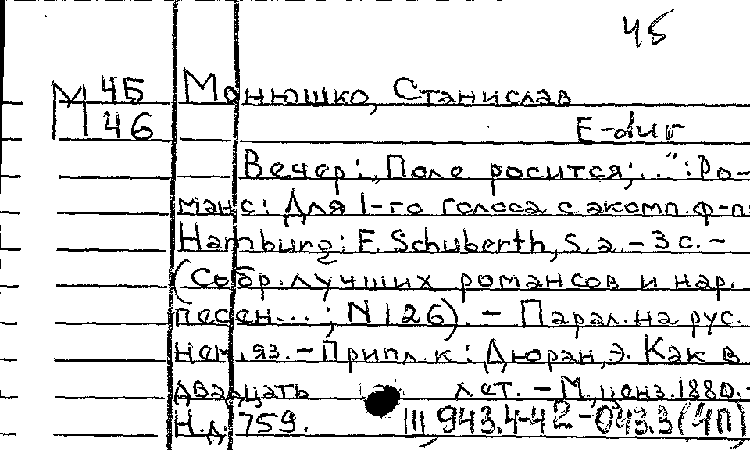 45
М 45 Монюшко, Станислав
46
E-dur
Вечер: „Поле росится;..": Ро-
манс: Для 1-го голоса с акомп. ф-п
Hamburg: F. Schuberth, s. a. – 3 с. –
(Собр. лучших романсов и нар.
песен...; N 126). – Парал. на рус.
нем. яз. – Припл. к: Дюран, Э. Как в
двадцать лет. – М., ценз. 1880. –
Н.д. 759. III, 943.4-42-043.3(4П)